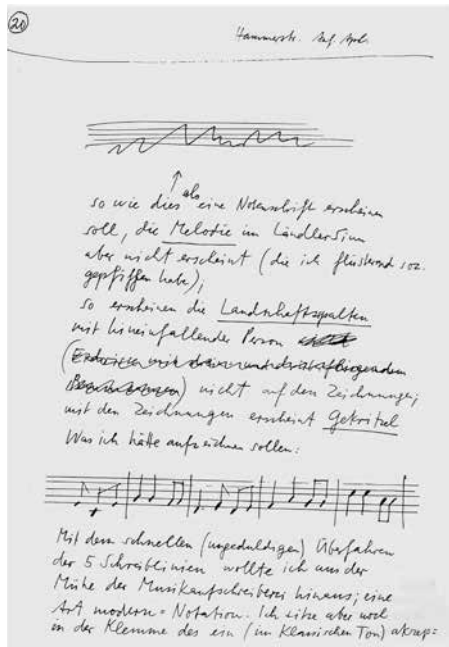 20
Hammerstr.
so wie dies als eine Notenschrift erscheinen
soll, die Melodie im Ländlersinn
aber nicht erscheint (die ich flüsternd soz.
gepfiffen habe);
so erscheinen die Landschaftsspalten
mit hineinfallender Person
( ) nicht auf den Zeichnungen;
mit den Zeichnungen erscheint Gekritzel
Was ich hätte aufzeichnen sollen:
Mit dem schnellen (ungeduldigen) Überfahren
der 5 Schreiblinien wollte ich aus der
Mühe der Musikaufschreiberei hinaus; eine
Art modern=Notation. Ich sitze aber noch
in der Klemme des ein (im Klassischen Ton) akzep=